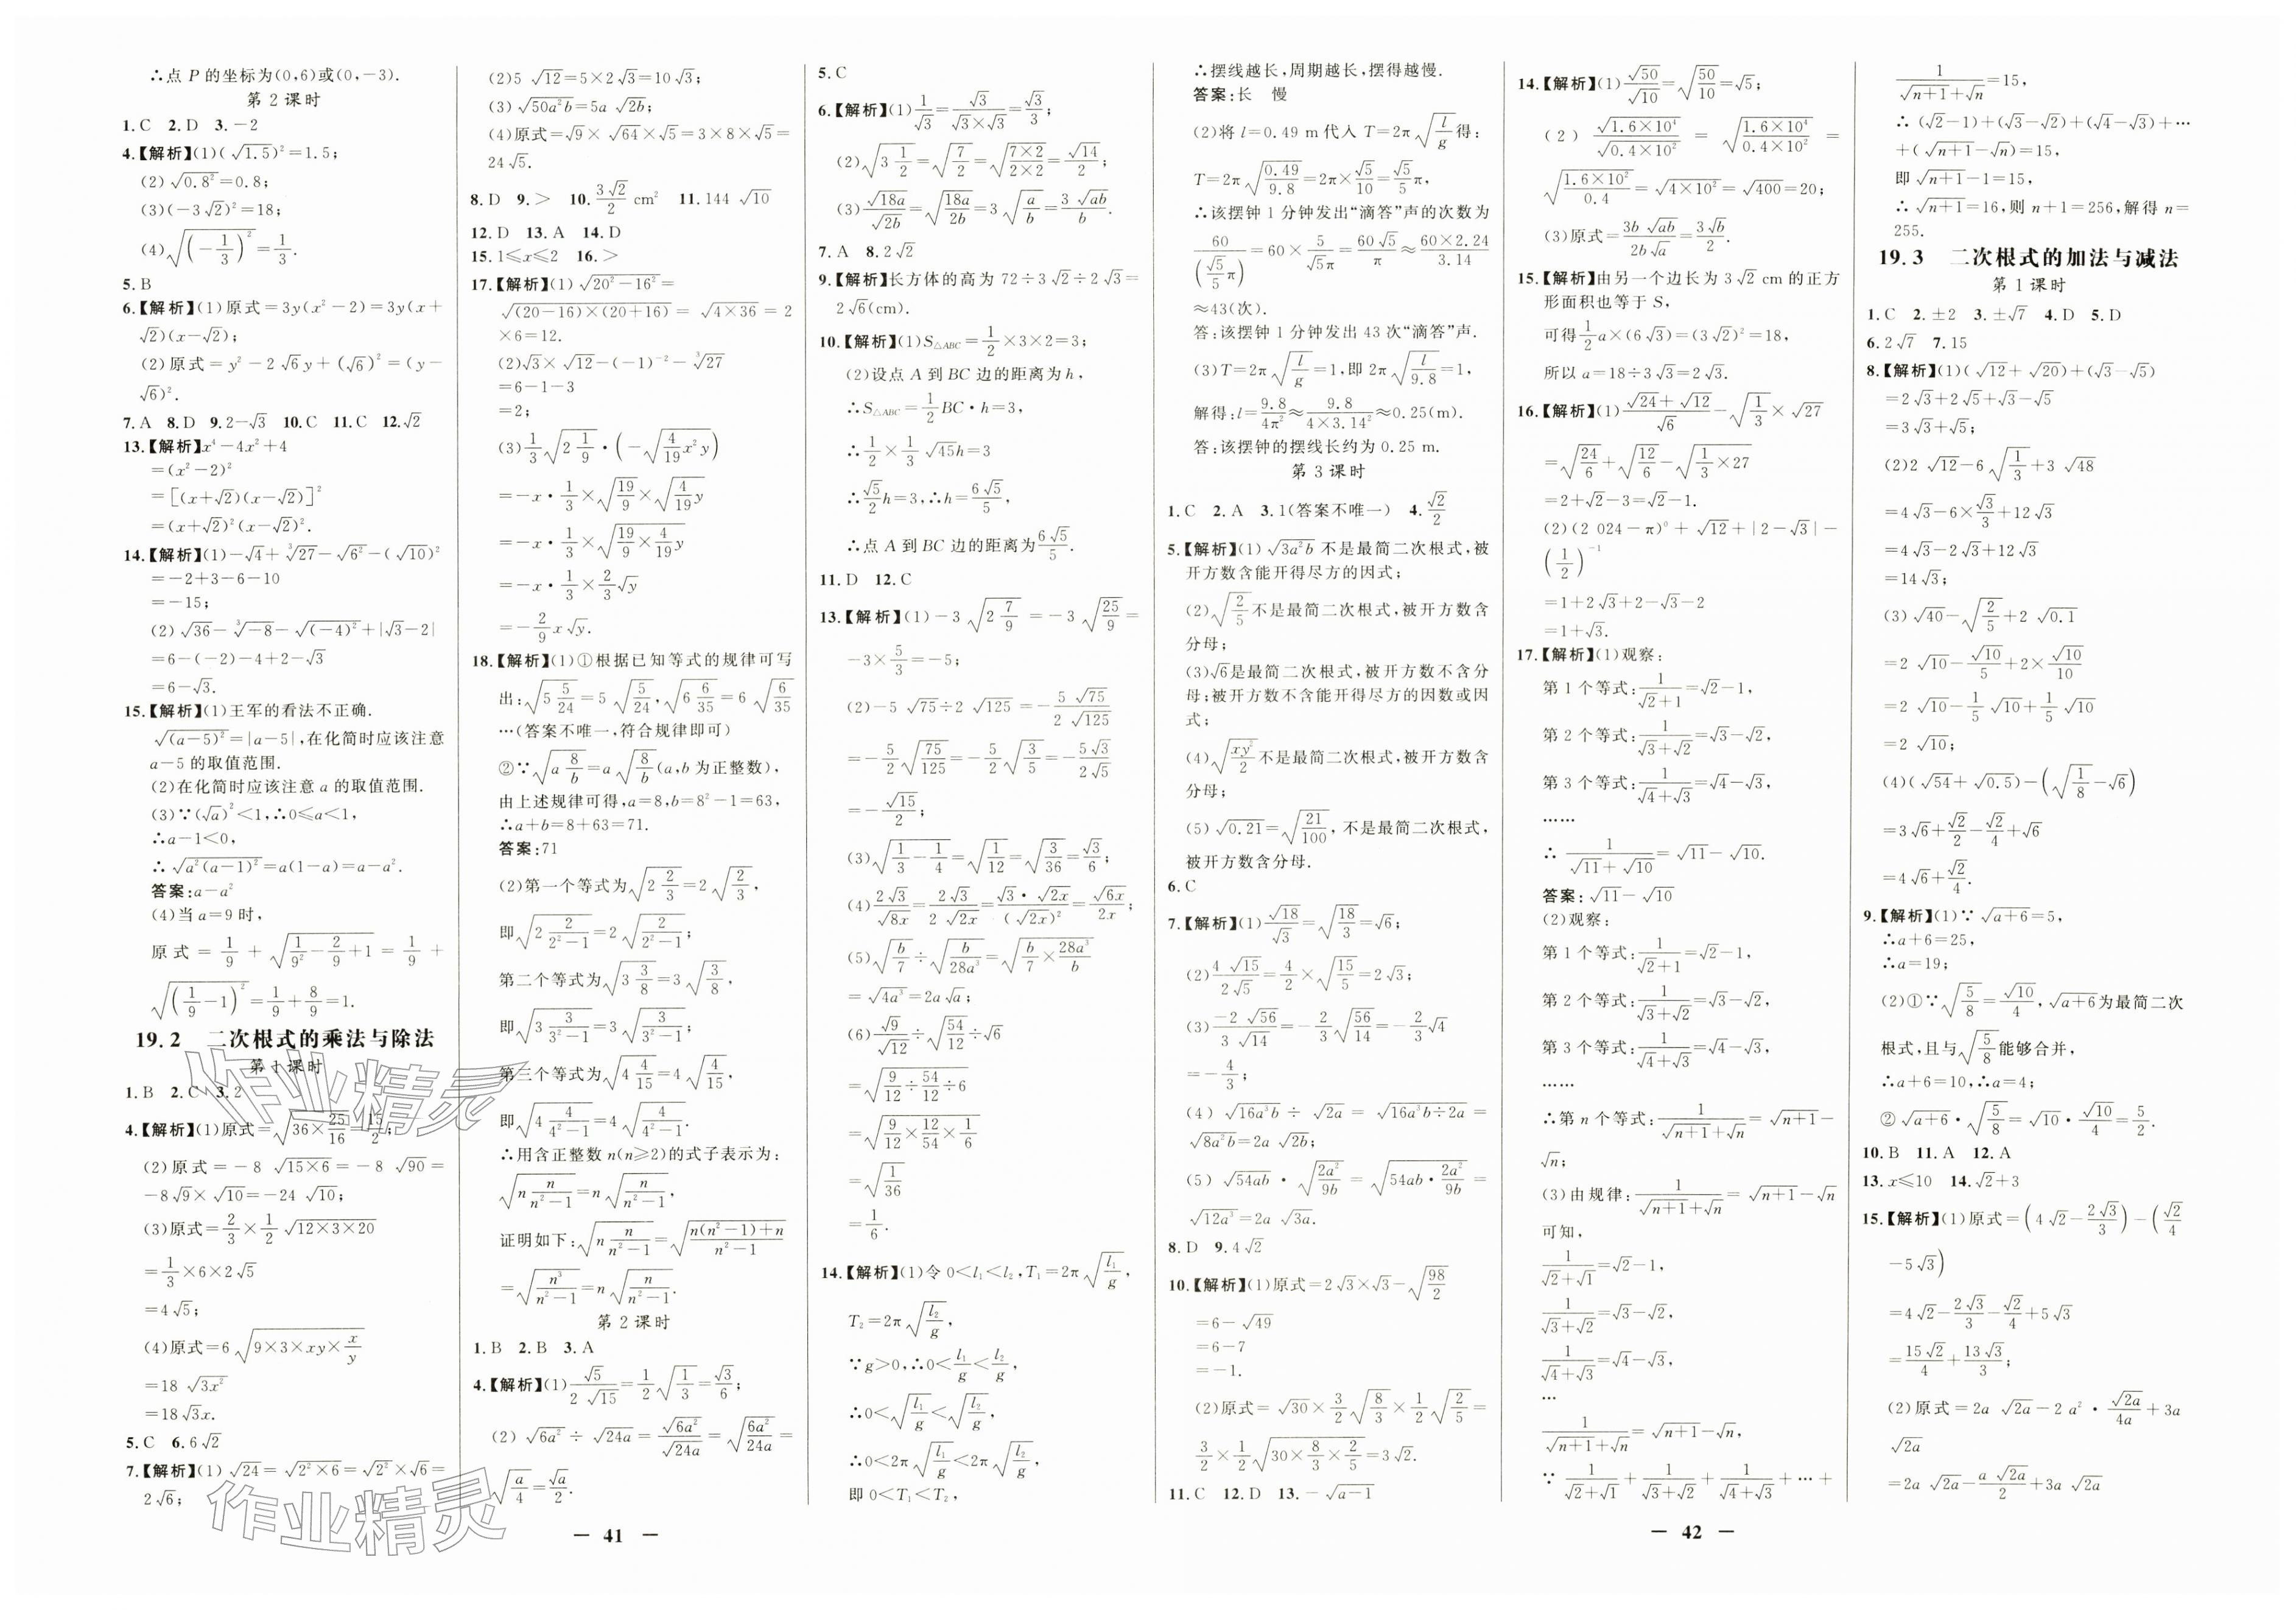 ∴点 P 的坐标为(0,6)或(0,-3).
第 2 课时
1.C 2.D 3.-2
4.【解析】(1)(√1.5)²=1.5;
(2)√(0.8²)=0.8;
(3)(-3√2)²=18;
(4)√((-1/3)²)=1/3.
5.B
6.【解析】(1)原式=3y(x²-2)=3y(x+
√2)(x-√2);
(2)原式=y²-2√6y+(√6)²=(y-
√6)².
7.A 8.D 9.2-√3 10.C 11.C 12.√2
13.【解析】x⁴-4x²+4
=(x²-2)²
=[(x+√2)(x-√2)]²
=(x+√2)²(x-√2)².
14.【解析】(1)-√4+³√27-√(6²)-(√10)²
=-2+3-6-10
=-15;
(2)√36-³√(-8)-√((-4)²)+|√3-2|
=6-(-2)-4+2-√3
=6-√3.
15.【解析】(1)王军的看法不正确.
√((a-5)²)=|a-5|,在化简时应该注意
a-5 的取值范围.
(2)在化简时应该注意 a 的取值范围.
(3)∵(√a)²<1,∴0≤a<1,
∴a-1<0,
∴√(a²(a-1)²)=a(1-a)=a-a².
答案:a-a²
(4)当 a=9 时,
原式=1/9+√(1/9²-2/9+1)=1/9+
√((1/9-1)²)=1/9+8/9=1.
19.2 二次根式的乘法与除法
第 1 课时
1.B 2.C 3.2
4.【解析】(1)原式=√(36×25/16)=15/2;
(2)原式=-8√(15×6)=-8√90=
-8√9×√10=-24√10;
(3)原式=2/3×1/2√(12×3×20)
=1/3×6×2√5
=4√5;
(4)原式=6√(9×3×xy×x/y)
=18√(3x²)
=18√3x.
5.C 6.6√2
7.【解析】(1)√24=√(2²×6)=√(2²)×√6=
2√6;
(2)5√12=5×2√3=10√3;
(3)√(50a²b)=5a√(2b);
(4)原式=√9×√64×√5=3×8×√5=
24√5.
8.D 9.> 10.3√2/2 cm² 11.144 √10
12.D 13.A 14.D
15.1≤x≤2 16.>
17.【解析】(1)√(20²-16²)=
√((20-16)×(20+16))=√(4×36)=2
×6=12.
(2)√3×√12-(-1)⁻²-³√27
=6-1-3
=2;
(3)1/3√(2 1/9)·(-√(4/19 x²y))
=-x·1/3×√(19/9)×√(4/19 y)
=-x·1/3×√(19/9×4/19 y)
=-x·1/3×2/3√y
=-2/9 x√y.
18.【解析】(1)①根据已知等式的规律可写
出:√(5 5/24)=5√(5/24),√(6 6/35)=6√(6/35)
…(答案不唯一,符合规律即可)
②∵√(a 8/b)=a√(8/b)(a,b 为正整数),
由上述规律可得,a=8,b=8²-1=63,
∴a+b=8+63=71.
答案:71
(2)第一个等式为√(2 2/3)=2√(2/3),
即√(2 2/(2²-1))=2√(2/(2²-1));
第二个等式为√(3 3/8)=3√(3/8),
即√(3 3/(3²-1))=3√(3/(3²-1));
第三个等式为√(4 4/15)=4√(4/15),
即√(4 4/(4²-1))=4√(4/(4²-1)).
∴用含正整数 n(n≥2)的式子表示为:
√(n n/(n²-1))=n√(n/(n²-1)),
证明如下:√(n n/(n²-1))=√((n(n²-1)+n)/(n²-1))
=√(n³/(n²-1))=n√(n/(n²-1)).
第 2 课时
1.B 2.B 3.A
4.【解析】(1)√5/(2√15)=1/2√(1/3)=√3/6;
(2)√(6a²)÷√(24a)=√(6a²)/√(24a)=√(6a²/24a)=
√(a/4)=√a/2.
5.C
6.【解析】(1)1/√3=√3/(√3×√3)=√3/3;
(2)√(3 1/2)=√(7/2)=√((7×2)/(2×2))=√14/2;
(3)√(18a)/√(2b)=√(18a/2b)=3√(a/b)=3√(ab)/b.
7.A 8.2√2
9.【解析】长方体的高为 72÷3√2÷2√3=
2√6(cm).
10.【解析】(1)S△ABC=1/2×3×2=3;
(2)设点 A 到 BC 边的距离为 h,
∴S△ABC=1/2BC·h=3,
∴1/2×1/3√45h=3
∴√5/2h=3,∴h=6√5/5,
∴点 A 到 BC 边的距离为6√5/5.
11.D 12.C
13.【解析】(1)-3√(2 7/9)=-3√(25/9)=
-3×5/3=-5;
(2)-5√75÷2√125=-5√75/(2√125)
=-5/2√(75/125)=-5/2√(3/5)=-5√3/(2√5)
=-√15/2;
(3)√(1/3-1/4)=√(1/12)=√(3/36)=√3/6;
(4)2√3/√(8x)=2√3/(2√(2x))=√3·√(2x)/(√(2x))²=√(6x)/2x;
(5)√(b/7)÷√(b/28a³)=√(b/7×28a³/b)
=√(4a³)=2a√a;
(6)√9/√12÷√(54/12)÷√6
=√(9/12÷54/12÷6)
=√(9/12×12/54×1/6)
=√(1/36)
=1/6.
14.【解析】(1)令 0<l₁<l₂,T₁=2π√(l₁/g),
T₂=2π√(l₂/g),
∵g>0,∴0<l₁/g<l₂/g,
∴0<√(l₁/g)<√(l₂/g),
∴0<2π√(l₁/g)<2π√(l₂/g),
即 0<T₁<T₂,
— 41 —
∴摆线越长,周期越长,摆得越慢.
答案:长 慢
(2)将 l=0.49 m代入 T=2π√(l/g)得:
T=2π√(0.49/9.8)=2π×√5/10=√5/5π,
∴该摆钟 1 分钟发出“滴答”声的次数为
60/(√5/5π)=60×5/(√5π)=60√5/π≈60×2.24/3.14
≈43(次).
答:该摆钟 1 分钟发出 43 次“滴答”声.
(3)T=2π√(l/g)=1,即 2π√(l/9.8)=1,
解得:l=9.8/4π²≈9.8/(4×3.14²)≈0.25(m).
答:该摆钟的摆线长约为 0.25 m.
第 3 课时
1.C 2.A 3.1(答案不唯一) 4.√2/2
5.【解析】(1)√(3a²b)不是最简二次根式,被
开方数含能开得尽方的因式;
(2)√(2/5)不是最简二次根式,被开方数含
分母;
(3)√6是最简二次根式,被开方数不含分
母;被开方数不含能开得尽方的因数或因
式;
(4)√(xy²/2)不是最简二次根式,被开方数含
分母;
(5)√0.21=√(21/100),不是最简二次根式,
被开方数含分母.
6.C
7.【解析】(1)√18/√3=√(18/3)=√6;
(2)4√15/(2√5)=4/2×√(15/5)=2√3;
(3)-2√56/(3√14)=-2/3√(56/14)=-2/3√4
=-4/3;
(4)√(16a³b)÷√(2a)=√(16a³b÷2a)=
√(8a²b)=2a√(2b);
(5)√(54ab)·√(2a²/9b)=√(54ab·2a²/9b)=
√(12a³)=2a√(3a).
8.D 9.4√2
10.【解析】(1)原式=2√3×√3-√(98/2)
=6-√49
=6-7
=-1.
(2)原式=√30×3/2√(8/3)×1/2√(2/5)=
3/2×1/2√(30×8/3×2/5)=3√2.
11.C 12.D 13.-√(a-1)
14.【解析】(1)√50/√10=√(50/10)=√5;
(2)√(1.6×10⁴)/√(0.4×10²)=√(1.6×10⁴/0.4×10²)=
√(1.6×10²/0.4)=√(4×10²)=√400=20;
(3)原式=3b√(ab)/(2b√a)=3√b/2.
15.【解析】由另一个边长为 3√2 cm 的正方
形面积也等于 S,
可得1/2a×(6√3)=(3√2)²=18,
所以 a=18÷3√3=2√3.
16.【解析】(1)(√24+√12)/√6-√(1/3)×√27
=√(24/6)+√(12/6)-√(1/3×27)
=2+√2-3=√2-1.
(2)(2 024-π)⁰+√12+|2-√3|-
(1/2)⁻¹
=1+2√3+2-√3-2
=1+√3.
17.【解析】(1)观察:
第 1 个等式:1/(√2+1)=√2-1,
第 2 个等式:1/(√3+√2)=√3-√2,
第 3 个等式:1/(√4+√3)=√4-√3,
……
∴1/(√11+√10)=√11-√10.
答案:√11-√10
(2)观察:
第 1 个等式:1/(√2+1)=√2-1,
第 2 个等式:1/(√3+√2)=√3-√2,
第 3 个等式:1/(√4+√3)=√4-√3,
……
∴第 n 个等式:1/(√(n+1)+√n)=√(n+1)-
√n;
(3)由规律:1/(√(n+1)+√n)=√(n+1)-√n
可知,
1/(√2+√1)=√2-1,
1/(√3+√2)=√3-√2,
1/(√4+√3)=√4-√3,
…
1/(√(n+1)+√n)=√(n+1)-√n,
∵1/(√2+√1)+1/(√3+√2)+1/(√4+√3)+…+
1/(√(n+1)+√n)=15,
∴(√2-1)+(√3-√2)+(√4-√3)+…
+(√(n+1)-√n)=15,
即√(n+1)-1=15,
∴√(n+1)=16,则 n+1=256,解得 n=
255.
19.3 二次根式的加法与减法
第 1 课时
1.C 2.±2 3.±√7 4.D 5.D
6.2√7 7.15
8.【解析】(1)(√12+√20)+(√3-√5)
=2√3+2√5+√3-√5
=3√3+√5;
(2)2√12-6√(1/3)+3√48
=4√3-6×√3/3+12√3
=4√3-2√3+12√3
=14√3;
(3)√40-√(2/5)+2√0.1
=2√10-√10/5+2×√10/10
=2√10-1/5√10+1/5√10
=2√10;
(4)(√54+√0.5)-(√(1/8)-√6)
=3√6+√2/2-√2/4+√6
=4√6+√2/4.
9.【解析】(1)∵√(a+6)=5,
∴a+6=25,
∴a=19;
(2)①∵√(5/8)=√10/4,√(a+6)为最简二次
根式,且与√(5/8)能够合并,
∴a+6=10,∴a=4;
②√(a+6)·√(5/8)=√10·√10/4=5/2.
10.B 11.A 12.A
13.x≤10 14.√2+3
15.【解析】(1)原式=(4√2-2√3/3)-(√2/4
-5√3)
=4√2-2√3/3-√2/4+5√3
=15√2/4+13√3/3;
(2)原式=2a√(2a)-2a²·√(2a)/4a+3a
√(2a)
=2a√(2a)-a√(2a)/2+3a√(2a)
— 42 —
作业精灵
作业精灵